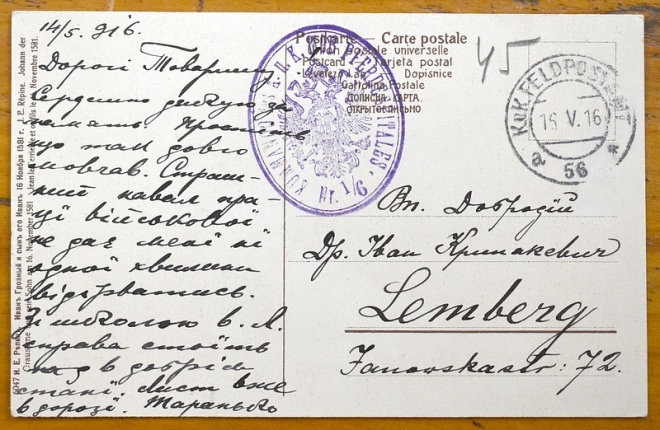 14/5. 916.
Дорогі Товаришу
Сердечно дякую за
память. Простіть
що так довго
мовчав. Страш-
ний навал пра-
ці військової
не дає мені ні
одної хвилини
відірватись.
Зі школою в Л.
справа стоїть
в добрім
стані. Лист вже
в дорозі.
Postkarte — Carte postale
Union Postale universelle
Postcard — Tarjeta postal
Levelező-Lap — Dopisnice
Cattolina Postale
ДОПИСНА КАРТА.
ОТКРЫТОЕ ПИСЬМО
Nr. 1/6
K.u.K. FELDPOSTAMT
15 V. 16
a *
56
45
Вп. Добродій
Др. Іван Крипякевич
Lemberg
Janovskastr: 72.
И. Е. Рѣпинъ. Иванъ Грозный и сынъ его Иванъ 16 Ноября 1581 г. J. E. Répine. Johann der
Grausame und sein Sohn am 16. November 1581. Jean le Terrible et son fils le 16 Novembre 1581.